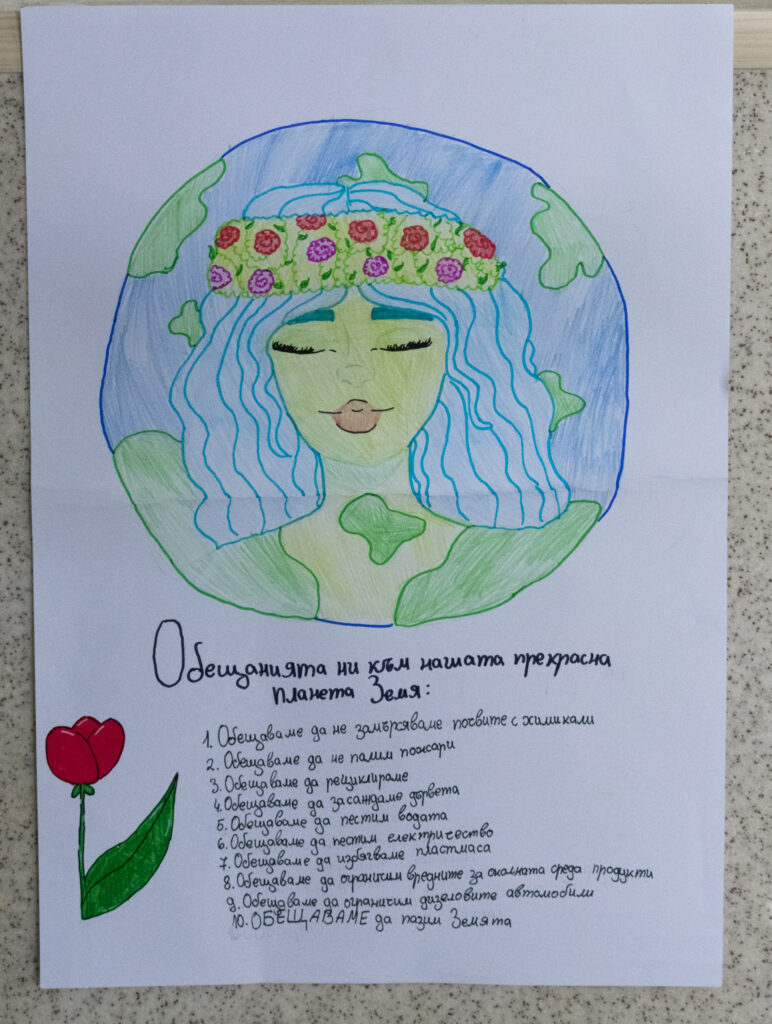 Обещанията ни към нашата прекрасна
планета Земя:
1. Обещаваме да не замърсяваме почвите с химикали
2. Обещаваме да не палим пожари
3. Обещаваме да рециклираме
4. Обещаваме да засаждаме дървета
5. Обещаваме да пестим водата
6. Обещаваме да пестим електричество
7. Обещаваме да избягваме пластмаса
8. Обещаваме да ограничим вредните за околната среда продукти
9. Обещаваме да ограничим дизеловите автомобили
10. ОБЕЩАВАМЕ да пазим Земята